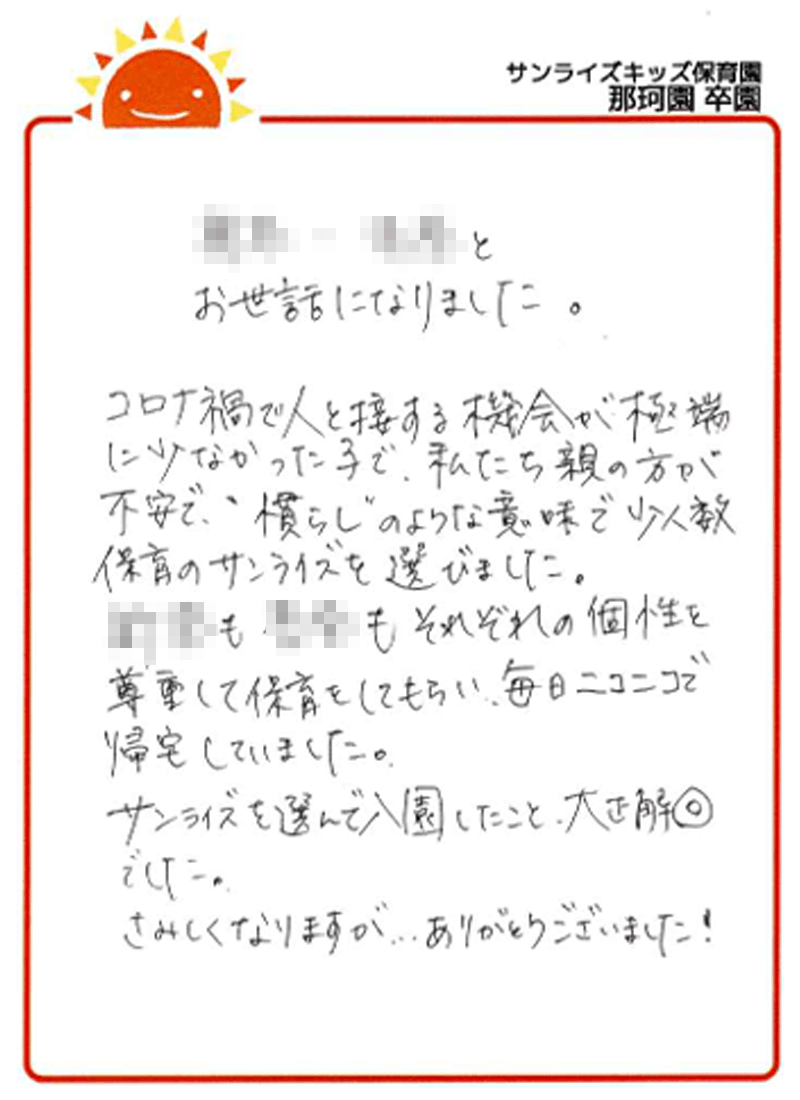 サンライズキッズ保育園
那珂園 卒園
と
お世話になりました。
コロナ禍で人と接する機会が極端
に少なかった子で、私たち親の方が
不安で、“慣らし”のような意味で少人数
保育のサンライズを選びました。
も も それぞれの個性を
尊重して保育をしてもらい、毎日ニコニコで
帰宅していました。
サンライズを選んで入園したこと、大正解◎
でした。
さみしくなりますが…ありがとうございました!